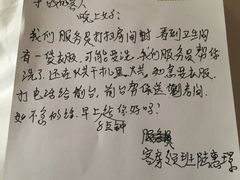 晚上好!
我们服务员打扫房间时,看到卫生间
有一袋衣服,可能要洗,我们服务员帮你
洗了.还在烘干机里大概,如急要衣服
打电话给前台,前台帮你送到房间.
如不急的话,早上给你好吗?
8点钟
服务员
客房